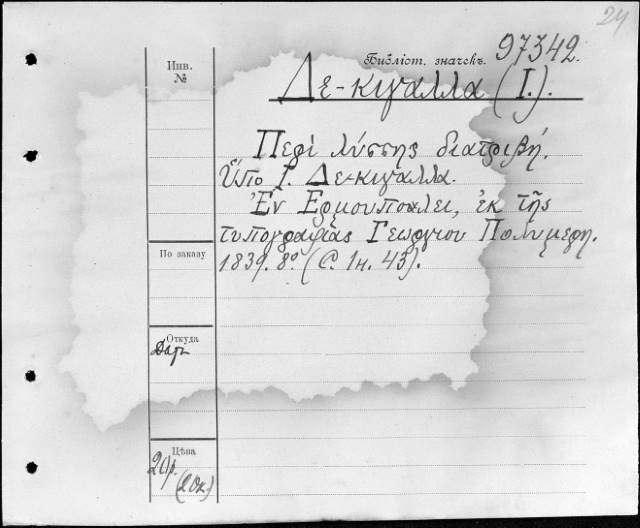 24
Библіот. значекъ. 97342.
Инв.
№
Δε-κιγαλλα (Ι.).
Περὶ λύσσης διατριβή.
Ὑπο Ι. Δε-κιγαλλα.
Ἐν Ερμουπολει, ἐκ τῆς
τυπογραφίας Γεωργιου Πολυμερη.
1839. 8º. (С. 1н. 43).
По заказу
Откуда
Дар
Цѣна